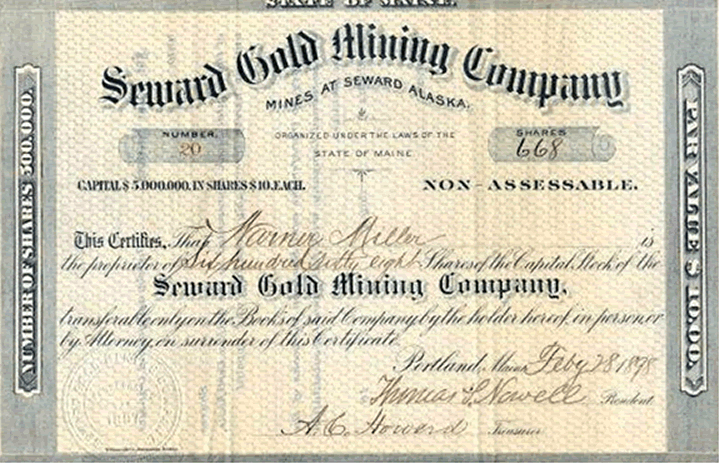 STATE OF MAINE.
Seward Gold Mining Company
MINES AT SEWARD ALASKA.
NUMBER.
20
ORGANIZED UNDER THE LAWS OF THE
STATE OF MAINE.
SHARES
668
CAPITAL $ 5,000,000. IN SHARES $10. EACH.
NON-ASSESSABLE.
NUMBER OF SHARES 500,000.
PAR VALUE $ 10.00.
This Certifies, That Warner Miller is
the proprietor of Six hundred sixty eight Shares of the Capital Stock of the
Seward Gold Mining Company,
transferable only on the Books of said Company by the holder hereof, in person, or
by Attorney, on surrender of this Certificate.
Portland, Maine Feby 28 1898
Thomas S. Nowell President
A. C. Howard Treasurer